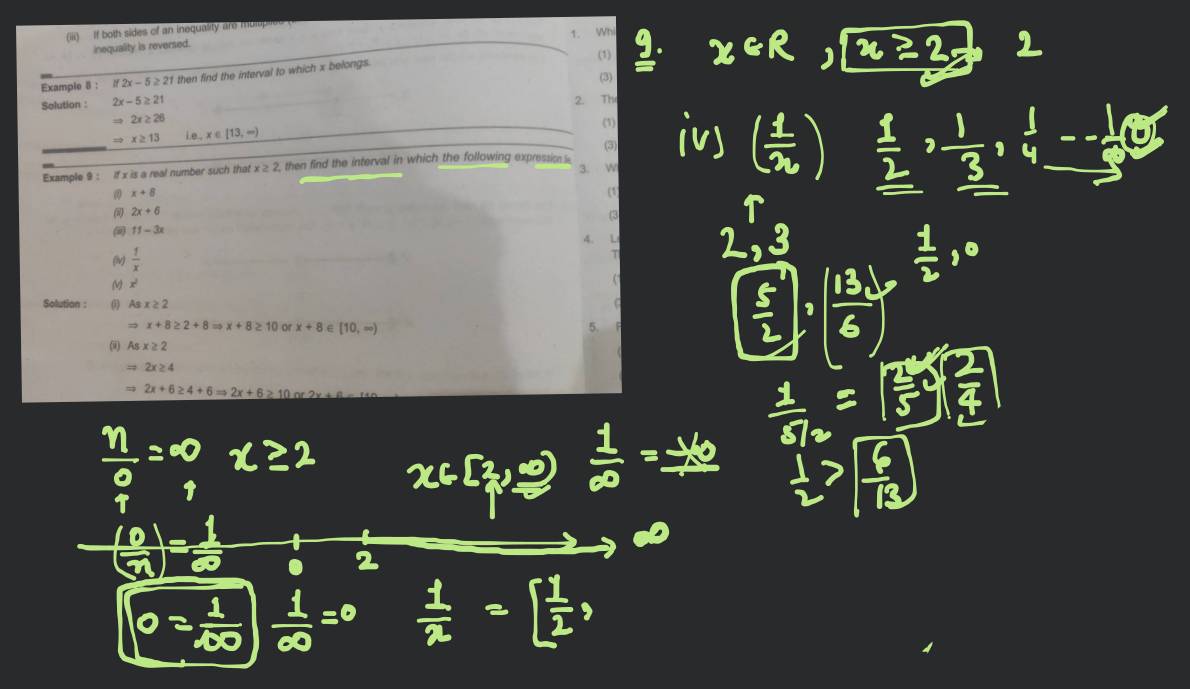 (iii) If both sides of an inequality are multiplied
inequality is reversed.
Example 8 : If 2x – 5 ≥ 21 then find the interval to which x belongs.
Solution : 2x – 5 ≥ 21
⇒ 2x ≥ 26
⇒ x ≥ 13 i.e., x ∈ [13, ∞)
Example 9 : If x is a real number such that x ≥ 2, then find the interval in which the following expression is
(i) x + 8
(ii) 2x + 6
(iii) 11 – 3x
(iv) 1/x
(v) x²
Solution : (i) As x ≥ 2
⇒ x + 8 ≥ 2 + 8 ⇒ x + 8 ≥ 10 or x + 8 ∈ [10, ∞)
(ii) As x ≥ 2
⇒ 2x ≥ 4
⇒ 2x + 6 ≥ 4 + 6 ⇒ 2x + 6 ≥ 10 or 2x + 6 ∈ [10
1. Whi
(1)
(3)
2. The
(1)
(3)
3. W
(1
(3
4. L
T
(
5. F
9. x ∈ R , x ≥ 2 2
iv) (1/x) 1/2 , 1/3 , 1/4 - - 1/∞ 0
2, 3 1/2 , 0
5/2 , (13/6)
1/5/2 = 2/5 2/4
1/2 > 6/13
n/0 = ∞ x ≥ 2 x ∈ [2, ∞) 1/∞ = 0
(0/n) = 1/∞ 0 2 ∞
0 = 1/∞ 1/∞ = 0 1/x = [1/2 ,